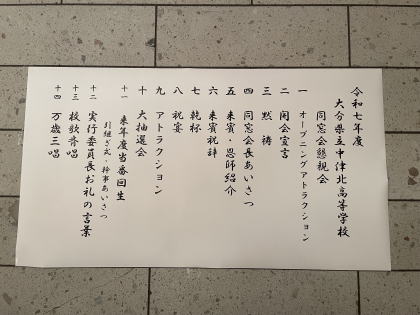 令和七年度
大分県立中津北高等学校
同窓会懇親会
一 オープニングアトラクション
二 開会宣言
三 黙祷
四 同窓会長あいさつ
五 来賓・恩師紹介
六 来賓祝辞
七 乾杯
八 祝宴
九 アトラクション
十 大抽選会
十一 来年度当番回生
引継ぎ式・幹事あいさつ
十二 実行委員長お礼の言葉
十三 校歌斉唱
十四 万歳三唱